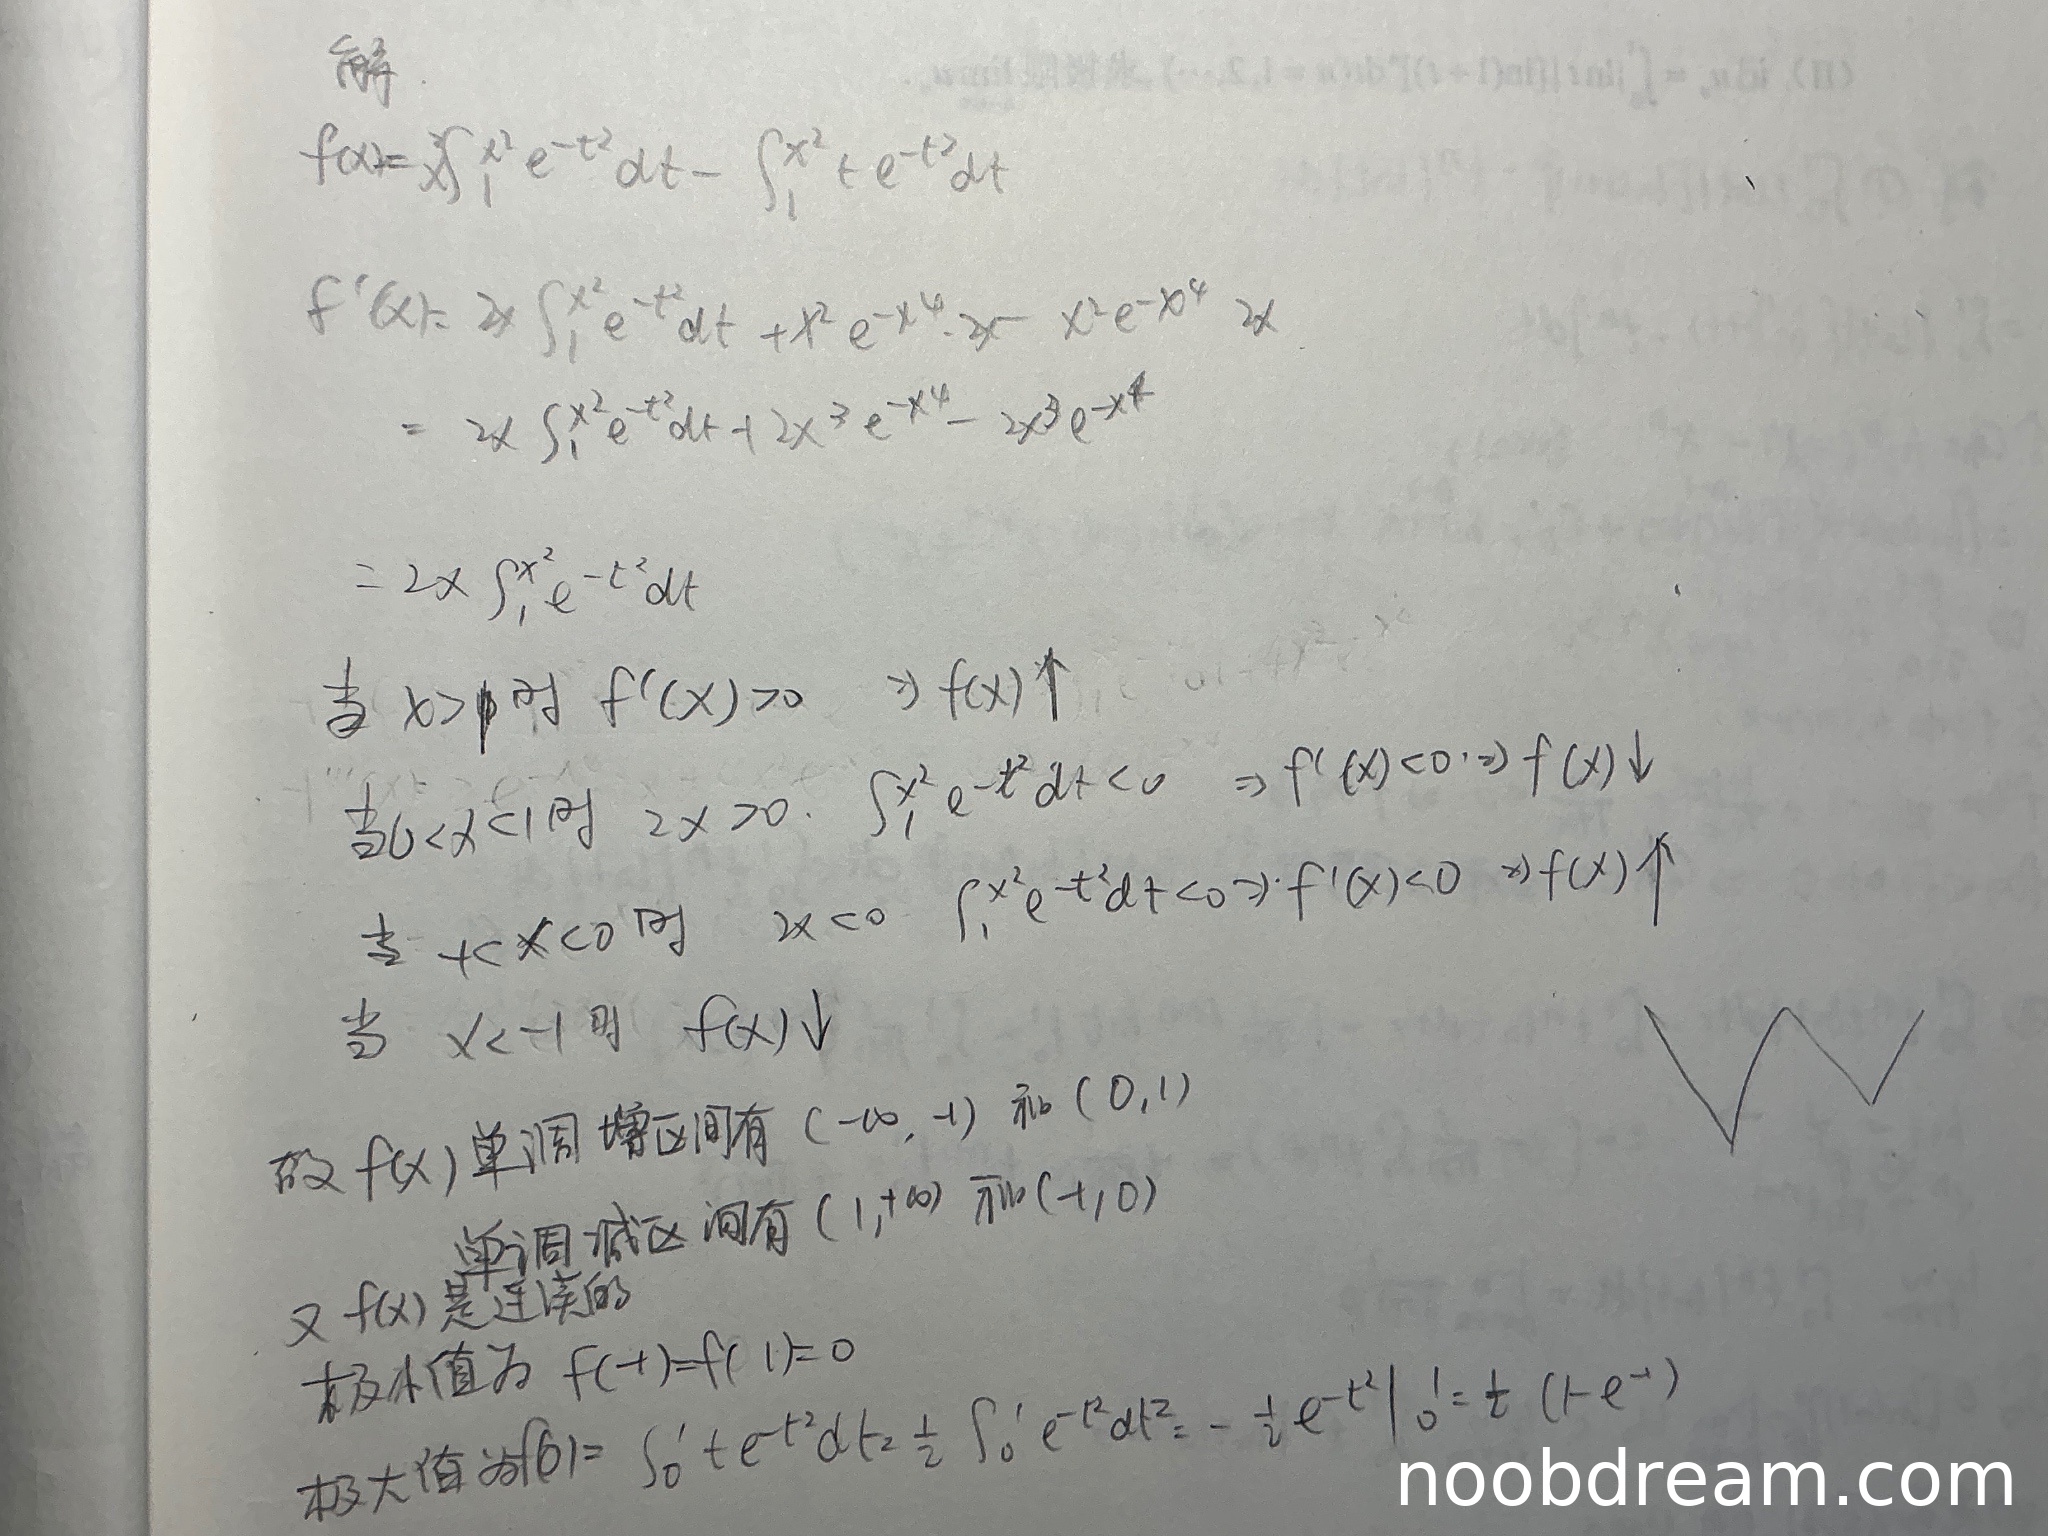 解.
f(x)=x²∫₁^{x²} e^{-t²}dt - ∫₁^{x²} t e^{-t²}dt
f'(x)= 2x ∫₁^{x²} e^{-t²}dt + x² e^{-x⁴}·2x - x² e^{-x⁴} 2x
= 2x ∫₁^{x²} e^{-t²}dt + 2x³ e^{-x⁴} - 2x³ e^{-x⁴}
= 2x ∫₁^{x²} e^{-t²}dt
当 x>1时 f'(x)>0 => f(x)↑
当0<x<1时 2x>0. ∫₁^{x²} e^{-t²}dt<0 => f'(x)<0 => f(x)↓
当 -1<x<0时 2x<0 ∫₁^{x²} e^{-t²}dt<0 => f'(x)<0 => f(x)↑
当 x<-1时 f(x)↓
故 f(x) 单调增区间有 (-∞,-1) 和 (0,1)
单调减区间有 (1,+∞) 和 (-1,0)
又 f(x) 是连续的
极小值为 f(-1)=f(1)=0
极大值为f(0)= ∫₀¹ t e^{-t²}dt= ½ ∫₀¹ e^{-t²}dt²= -½ e^{-t²}|₀¹= ½ (1-e^{-1})
noobdream.com